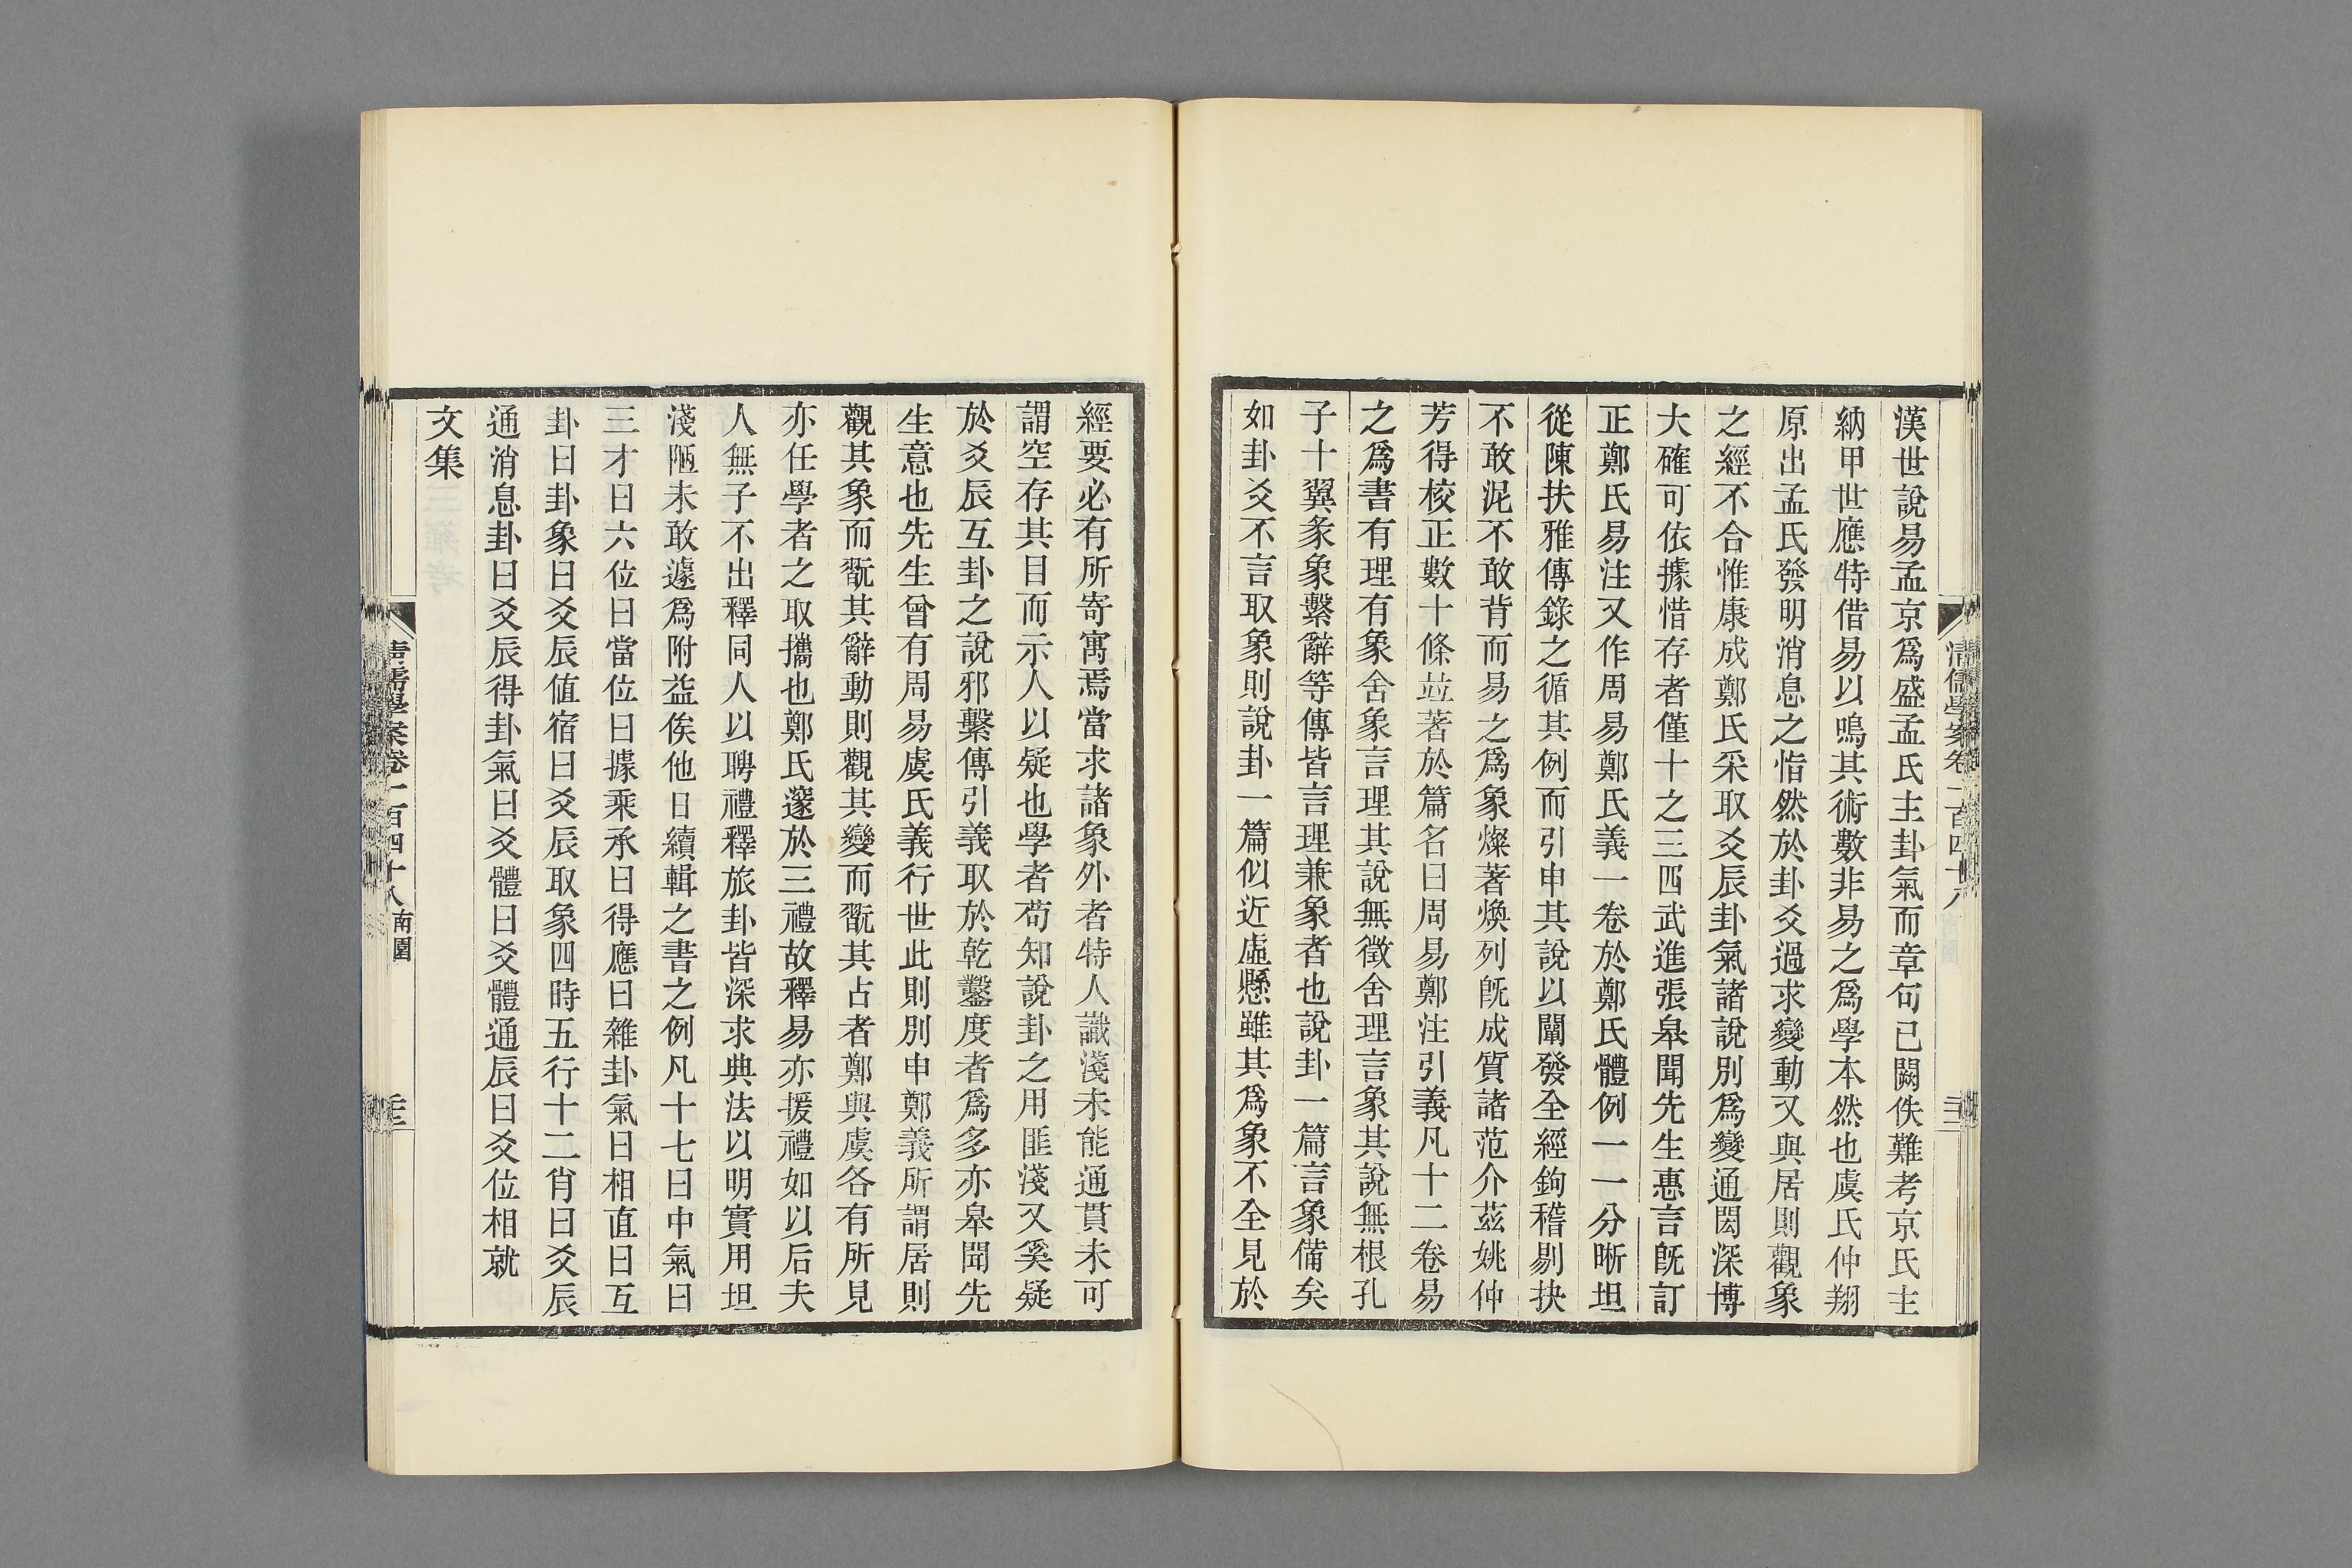 漢世說易孟京爲盛孟氏主卦氣而章句已闕佚難考京氏主
納甲世應特借易以鳴其術數非易之爲學本然也虞氏仲翔
原出孟氏發明消息之恉然於卦爻過求變動又與居則觀象
之經不合惟康成鄭氏采取爻辰卦氣諸說別爲變通閎深博
大確可依據惜存者僅十之三四武進張皋聞先生惠言旣訂
正鄭氏易注又作周易鄭氏義一卷於鄭氏體例一一分晣坦
從陳扶雅傳錄之循其例而引申其說以闡發全經鉤稽剔抉
不敢泥不敢背而易之爲象燦著煥列旣成質諸范介茲姚仲
芳得校正數十條竝著於篇名曰周易鄭注引義凡十二卷易
之爲書有理有象舍象言理其說無徵舍理言象其說無根孔
子十翼彖象繫辭等傳皆言理兼象者也說卦一篇言象備矣
如卦爻不言取象則說卦一篇似近虛懸雖其爲象不全見於
清儒學案卷二百四十八
經要必有所寄寓焉當求諸象外者特人識淺未能通貫未可
謂空存其目而示人以疑也學者苟知說卦之用匪淺又奚疑
於爻辰互卦之說邪繫傳引義取於乾鑿度者爲多亦皋聞先
生意也先生曾有周易虞氏義行世此則別申鄭義所謂居則
觀其象而翫其辭動則觀其變而翫其占者鄭與虞各有所見
亦任學者之取攜也鄭氏邃於三禮故釋易亦援禮如以后夫
人無子不出釋同人以聘禮釋旅卦皆深求典法以明實用坦
淺陋未敢遽爲附益俟他日續輯之書之例凡十七曰中氣曰
三才曰六位曰當位曰據乘承曰得應曰雜卦氣曰相直曰互
卦曰卦象曰爻辰値宿曰爻辰取象四時五行十二肖曰爻辰
通消息卦曰爻辰得卦氣曰爻體曰爻體通辰曰爻位相就
文集
清儒學案卷二百四十八 南園